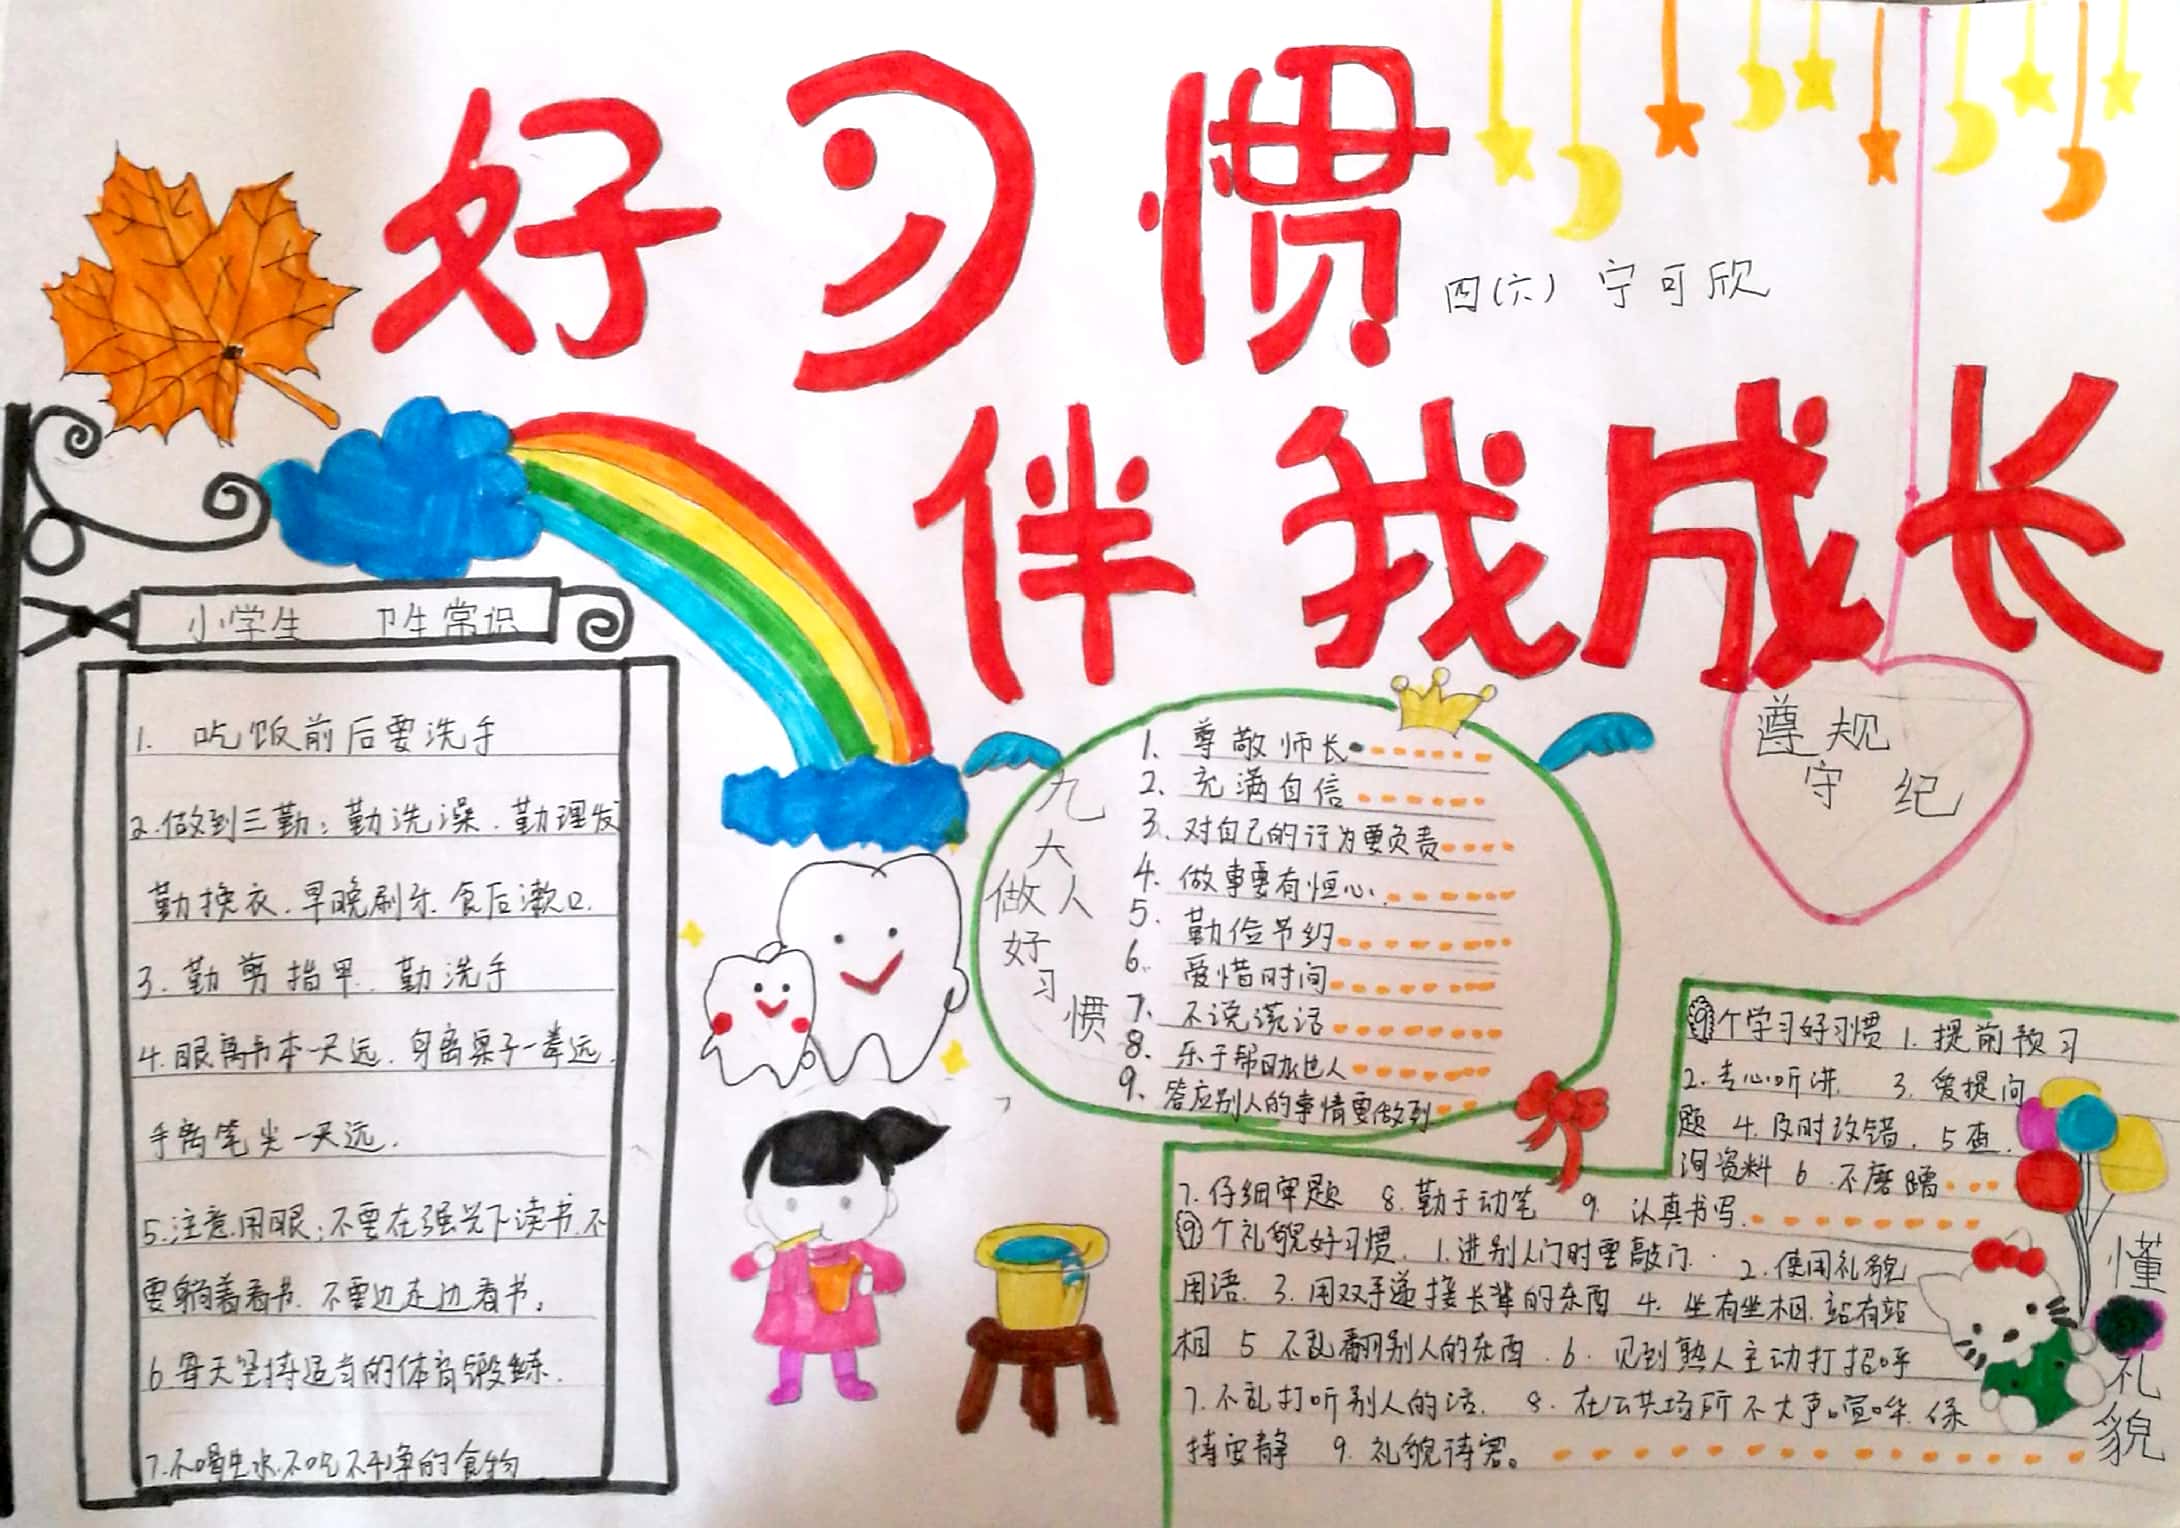 好习惯
四(六) 宁可欣
伴我成长
小学生 卫生常识
1. 吃饭前后要洗手
2.做到三勤:勤洗澡、勤理发
勤换衣.早晚刷牙.食后漱口.
3.勤剪指甲.勤洗手
4.眼离书本一尺远.身离桌子一拳远.
手离笔尖一尺远.
5.注意用眼:不要在强光下读书.不
要躺着看书.不要边走边看书。
6每天坚持适当的体育锻练.
7.不喝生水.不吃不干净的食物
九
大
做人
好
习
惯
1. 尊敬师长
2. 充满自信
3. 对自己的行为要负责
4. 做事要有恒心
5. 勤俭节约
6. 爱惜时间
7. 不说谎话
8. 乐于帮助他人
9. 答应别人的事情要做到
遵规
守 纪
9个学习好习惯 1. 提前预习
2.专心听讲. 3.爱提问
题 4.及时改错. 5查
询资料 6.不磨蹭
7.仔细审题 8.勤于动笔 9. 认真书写.
9个礼貌好习惯. 1.进别人门时要敲门. 2.使用礼貌
用语. 3.用双手递接长辈的东西 4. 坐有坐相.站有站
相 5 不乱翻别人的东西.6.见到熟人主动打招呼
7.不乱打听别人的话. 8.在公共场所不大声喧哗.保
持安静 9.礼貌待客。
懂
礼
貌